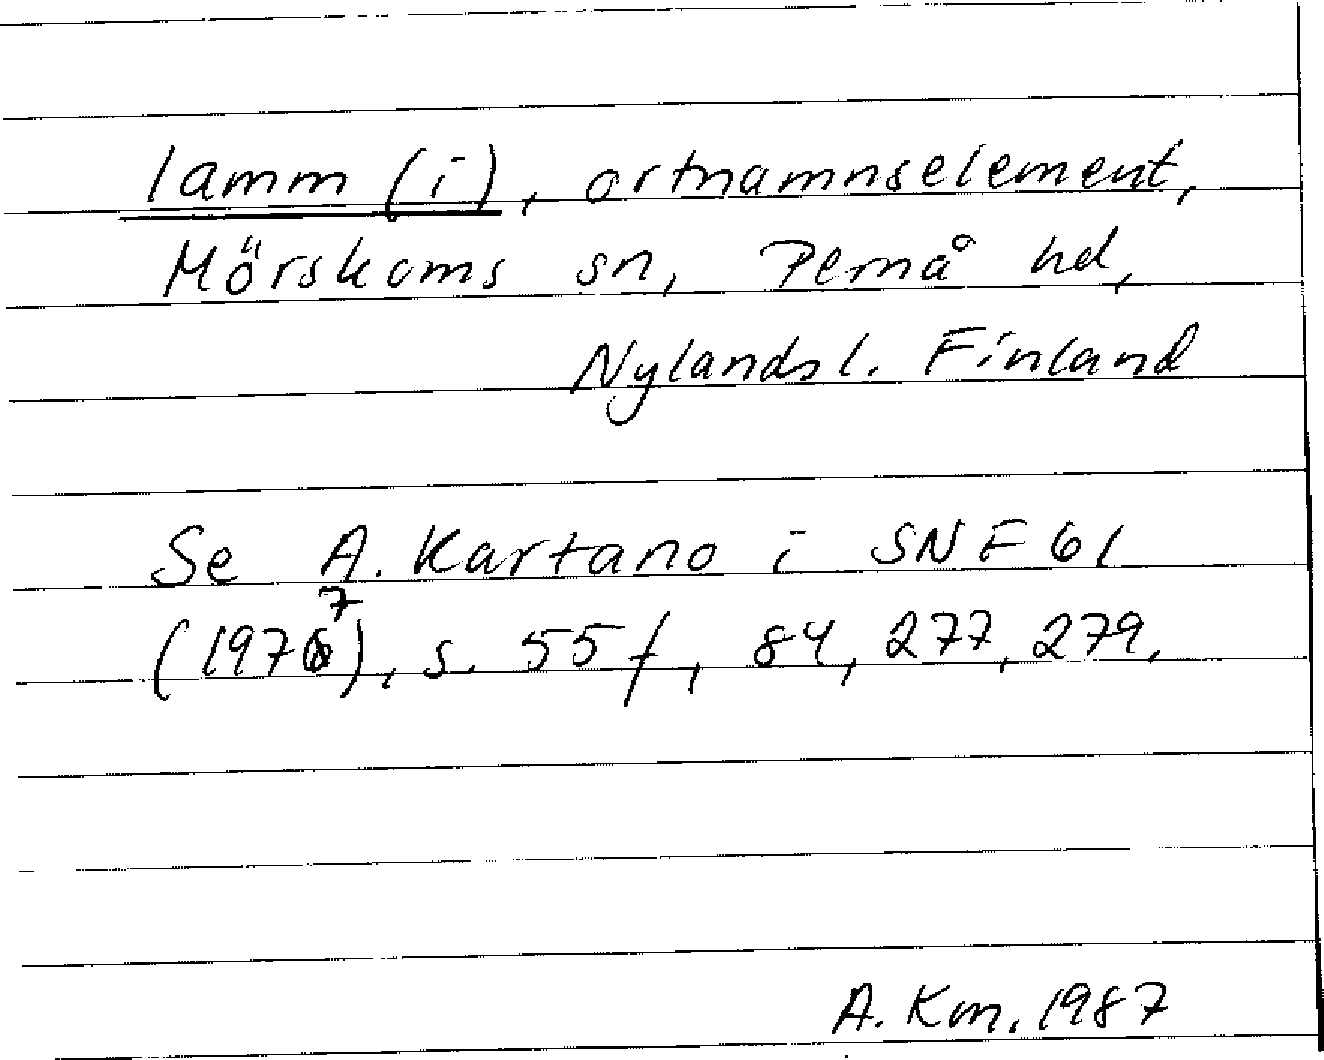 lamm (i), ortnamnselement,
Mörskoms sn, Pernå hd,
Nylands l. Finland
Se A. Kartano i SNF 61
(1977), s. 55 f, 84, 277, 279.
A. Km. 1987